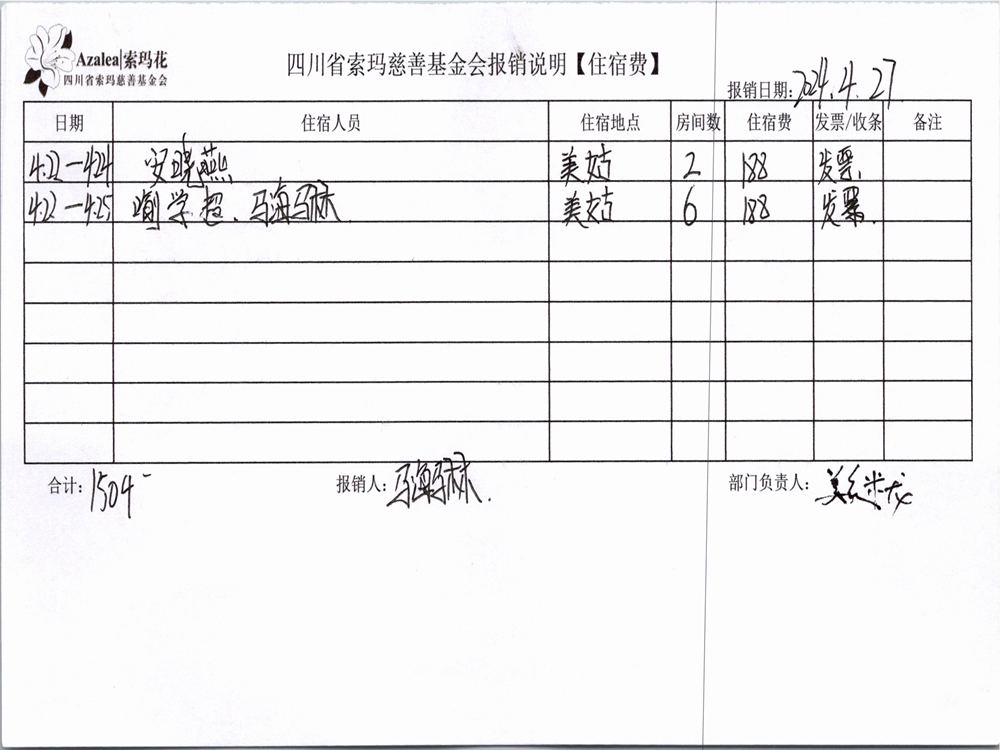 Azalea|索玛花
四川省索玛慈善基金会
四川省索玛慈善基金会报销说明【住宿费】
报销日期: 2024.4.27
日期 住宿人员 住宿地点 房间数 住宿费 发票/收条 备注
4.22—4.24 安晓燕 美姑 2 188 发票.
4.22—4.25 学超、马海马林 美姑 6 188 发票.
合计: 1504- 报销人: 马海马林. 部门负责人: